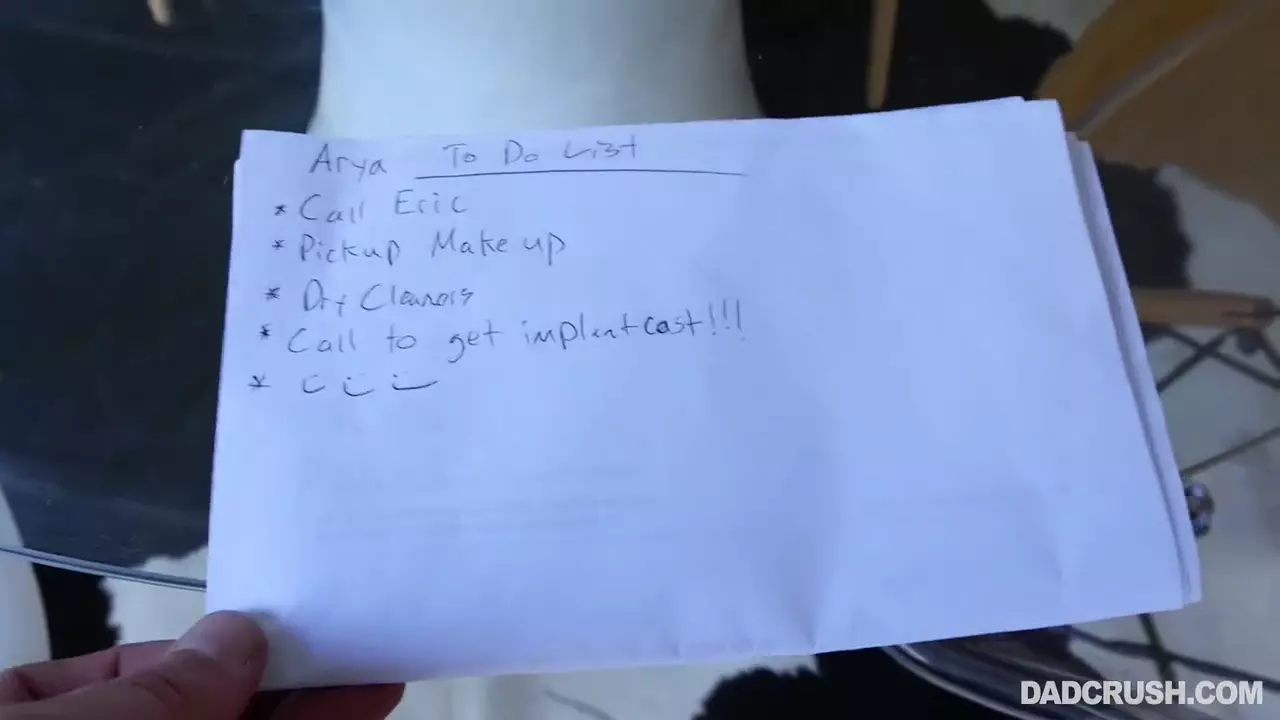 Arya To Do List
* Call Eric
* Pickup Make up
* Dry Cleaners
* Call to get implant cost!!!
*
DADCRUSH.COM